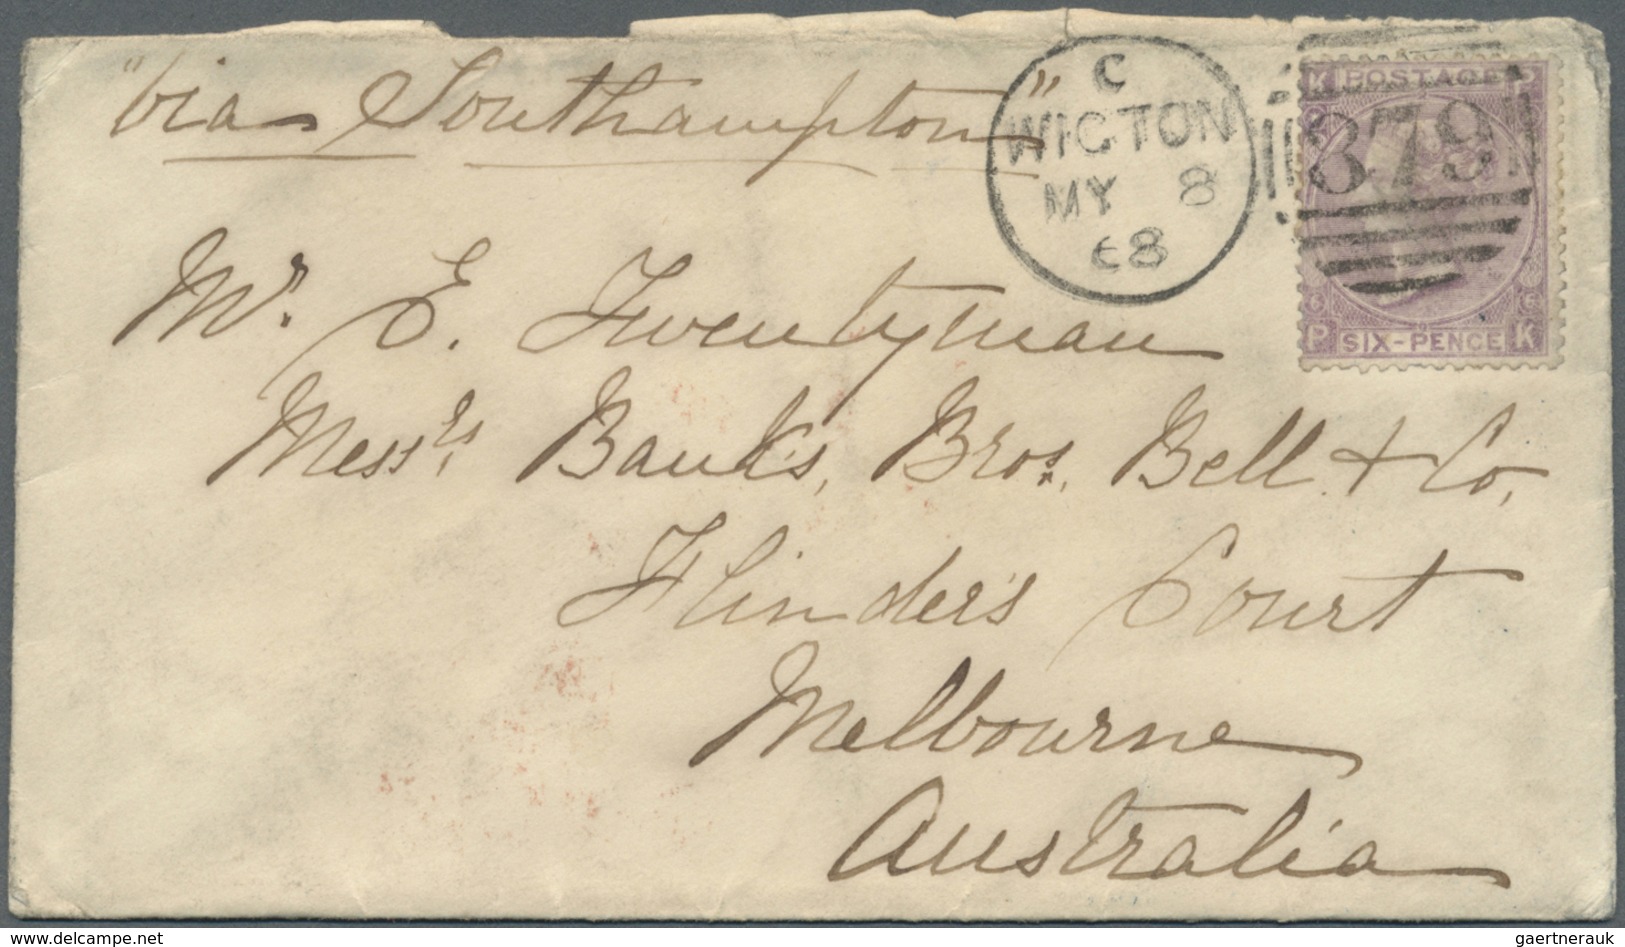 "via Southampton"
C
WIGTON
MY 8
68
K POSTAGE P
879
6 6
P SIX-PENCE K
Mr. E. Twentyman
Messrs. Banks, Bros. Bell & Co.
Flinder's Court
Melbourne
Australia
www.delcampe.net
gaertnerauk